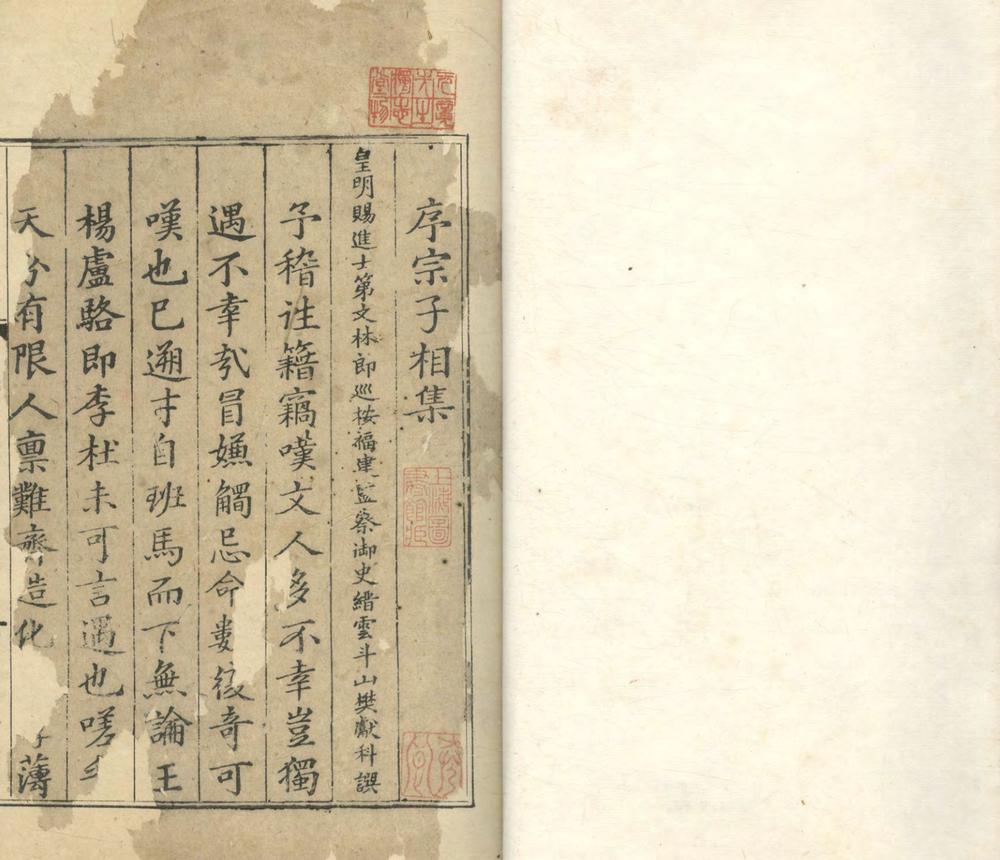 序宗子相集
皇明賜進士第文林郎巡按福建監察御史縉雲斗山樊獻科譔
予稽往籍竊嘆文人多不幸豈獨
遇不幸哉冒嫌觸忌命奇可
嘆也已遡才自班馬而下無論王
楊盧駱即李杜未可言遇也嗟
天分有限人禀難齊造化薄
上海圖書館藏